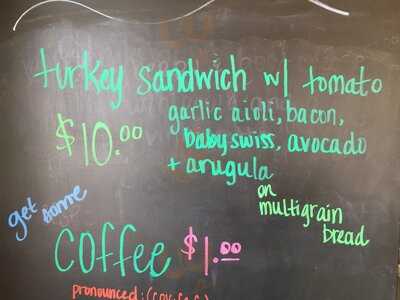 turkey sandwich w/ tomato
garlic aioli, bacon,
$10.00 baby swiss, avocado
+ arugula
on
multigrain
bread
get some
coffee $1.00
pronounced: